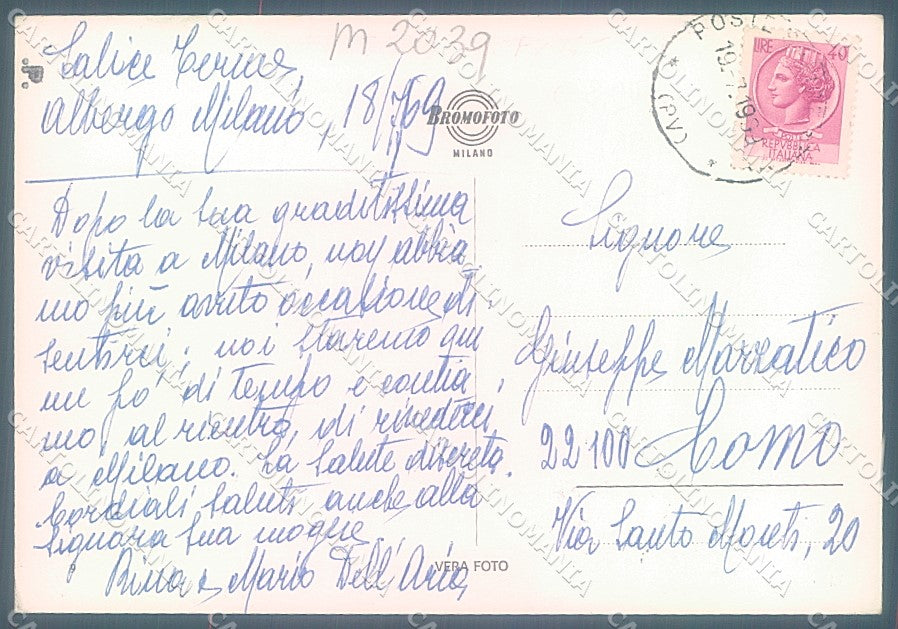 m 2039
Salice Terme,
Albergo Milano, 18/7/69
BROMOFOTO
MILANO
POSTE
19.7.1969
(PV)
LIRE 40
POSTE
REPVBBLICA
ITALIANA
Dopo la Sua graditissima
visita a Milano, non abbia-
mo più avuto occasione di
sentirci; noi staremo qui
un po' di tempo e contia
mo, al rientro, di rivederci
a Milano. La salute discreta.
Cordiali saluti anche alla
Signora Sua moglie
Rina e Mario Dell'Aria
VERA FOTO
Signore
Giuseppe Marzatico
22100 Como
Via Santo Monti, 20
CARTOLINOMANIA